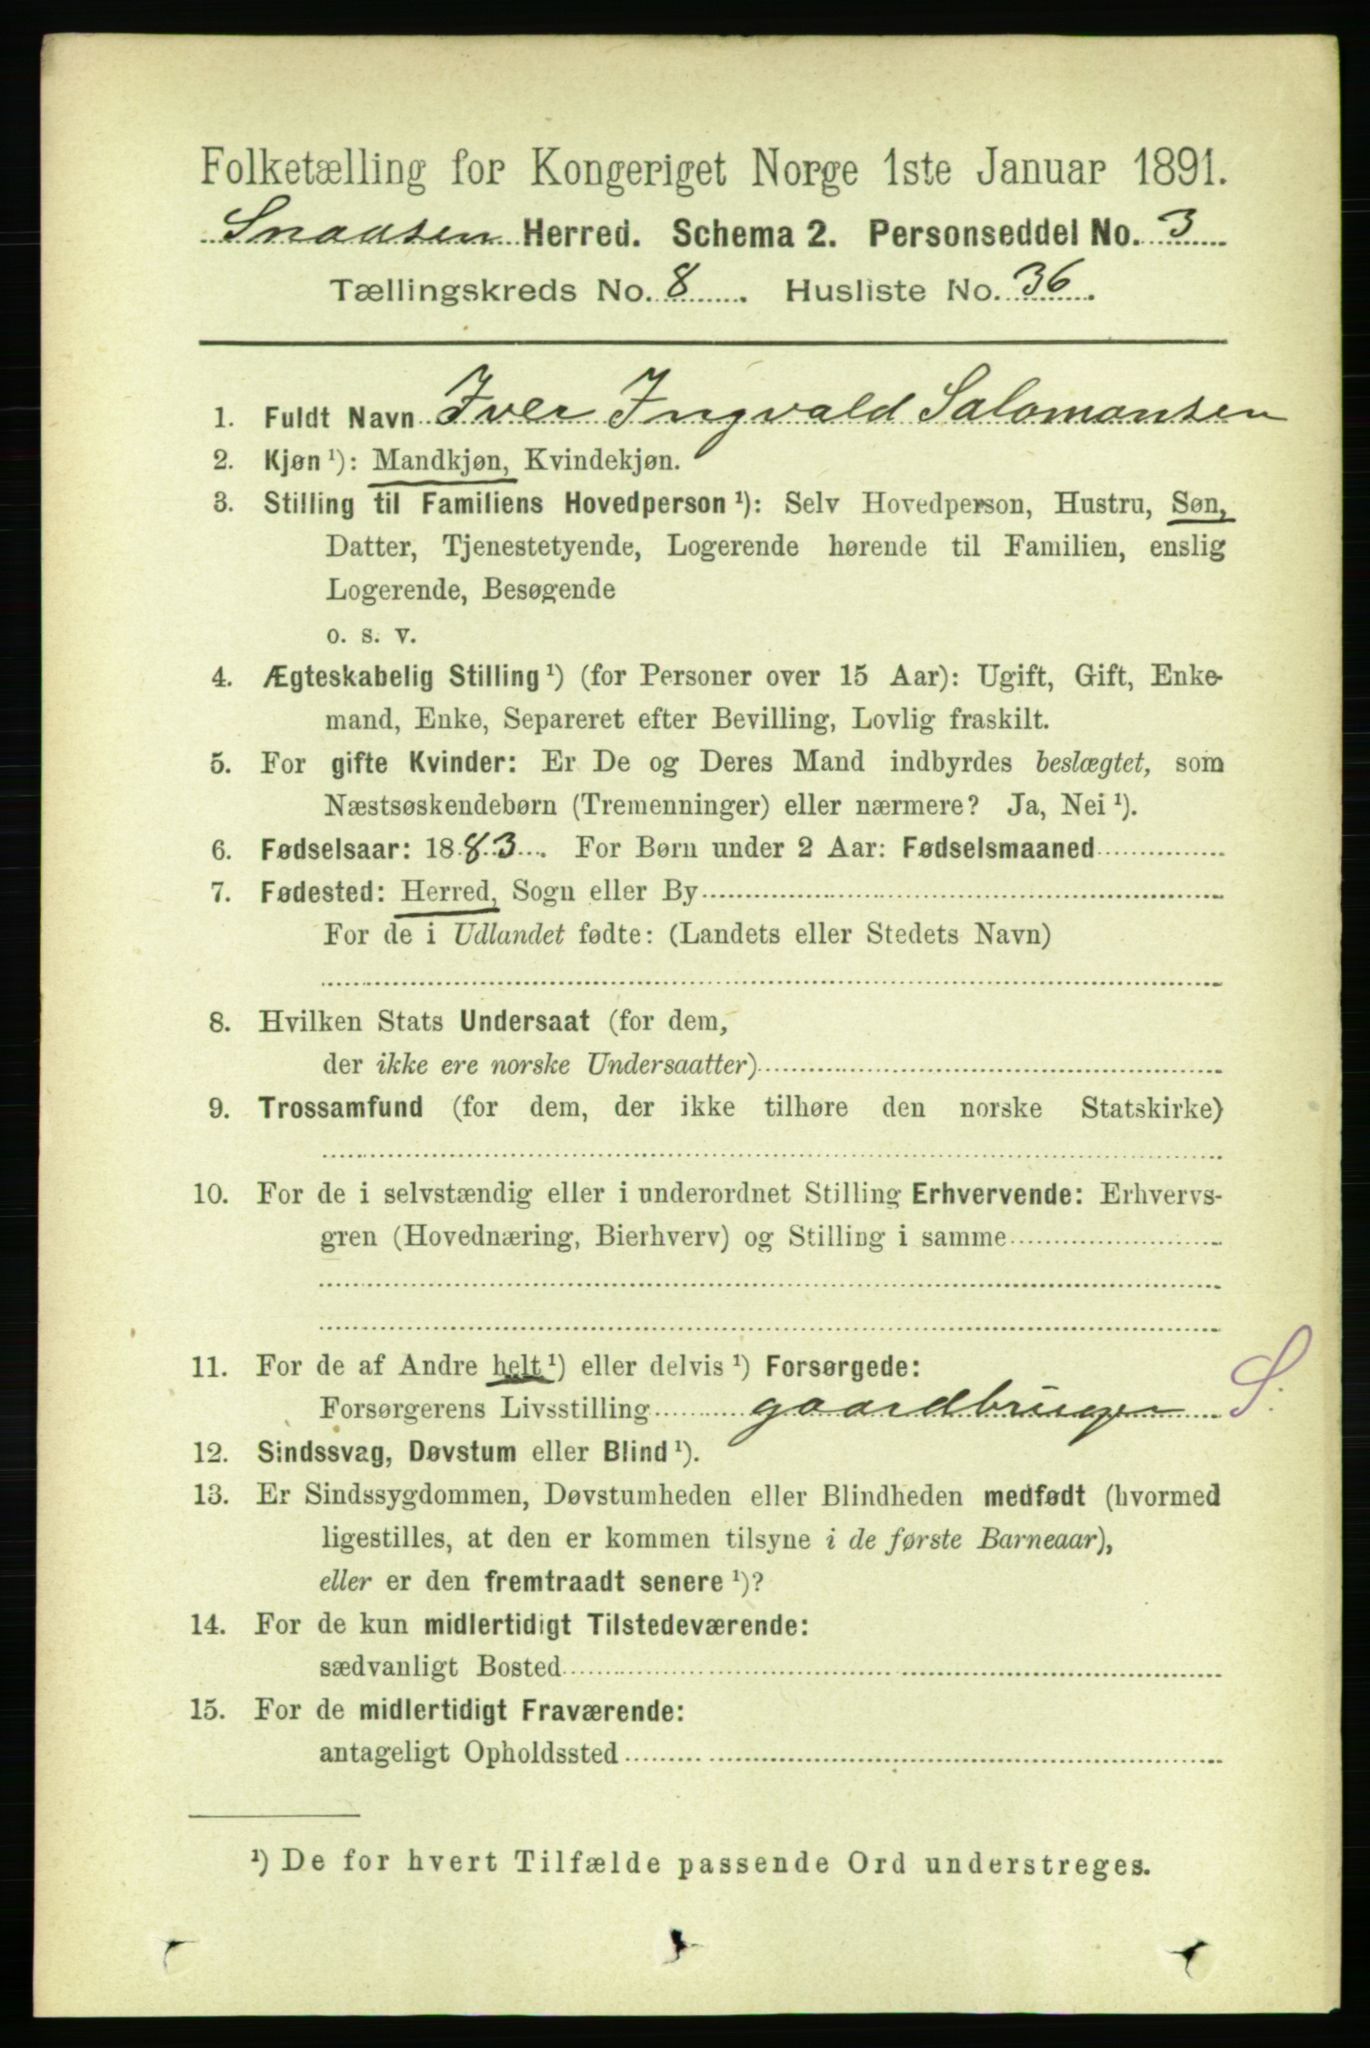 Folketælling for Kongeriget Norge 1ste Januar 1891.
Snaasen Herred. Schema 2. Personseddel No. 3
Tællingskreds No. 8. Husliste No. 36.
1. Fuldt Navn Iver Ingvald Salomonsen
2. Kjøn ¹): Mandkjøn, Kvindekjøn.
3. Stilling til Familiens Hovedperson ¹): Selv Hovedperson, Hustru, Søn,
Datter, Tjenestetyende, Logerende hørende til Familien, enslig
Logerende, Besøgende
o. s. v.
4. Ægteskabelig Stilling ¹) (for Personer over 15 Aar): Ugift, Gift, Enke-
mand, Enke, Separeret efter Bevilling, Lovlig fraskilt.
5. For gifte Kvinder: Er De og Deres Mand indbyrdes beslægtet, som
Næstsøskendebørn (Tremenninger) eller nærmere? Ja, Nei ¹).
6. Fødselsaar: 1883. For Børn under 2 Aar: Fødselsmaaned
7. Fødested: Herred, Sogn eller By
For de i Udlandet fødte: (Landets eller Stedets Navn)
8. Hvilken Stats Undersaat (for dem,
der ikke ere norske Undersaatter)
9. Trossamfund (for dem, der ikke tilhøre den norske Statskirke)
10. For de i selvstændig eller i underordnet Stilling Erhvervende: Erhvervs-
gren (Hovednæring, Bierhverv) og Stilling i samme
11. For de af Andre helt ¹) eller delvis ¹) Forsørgede:
Forsørgerens Livsstilling gaardbruger S.
12. Sindssvag, Døvstum eller Blind ¹).
13. Er Sindssygdommen, Døvstumheden eller Blindheden medfødt (hvormed
ligestilles, at den er kommen tilsyne i de første Barneaar),
eller er den fremtraadt senere ¹)?
14. For de kun midlertidigt Tilstedeværende:
sædvanligt Bosted
15. For de midlertidigt Fraværende:
antageligt Opholdssted
¹) De for hvert Tilfælde passende Ord understreges.